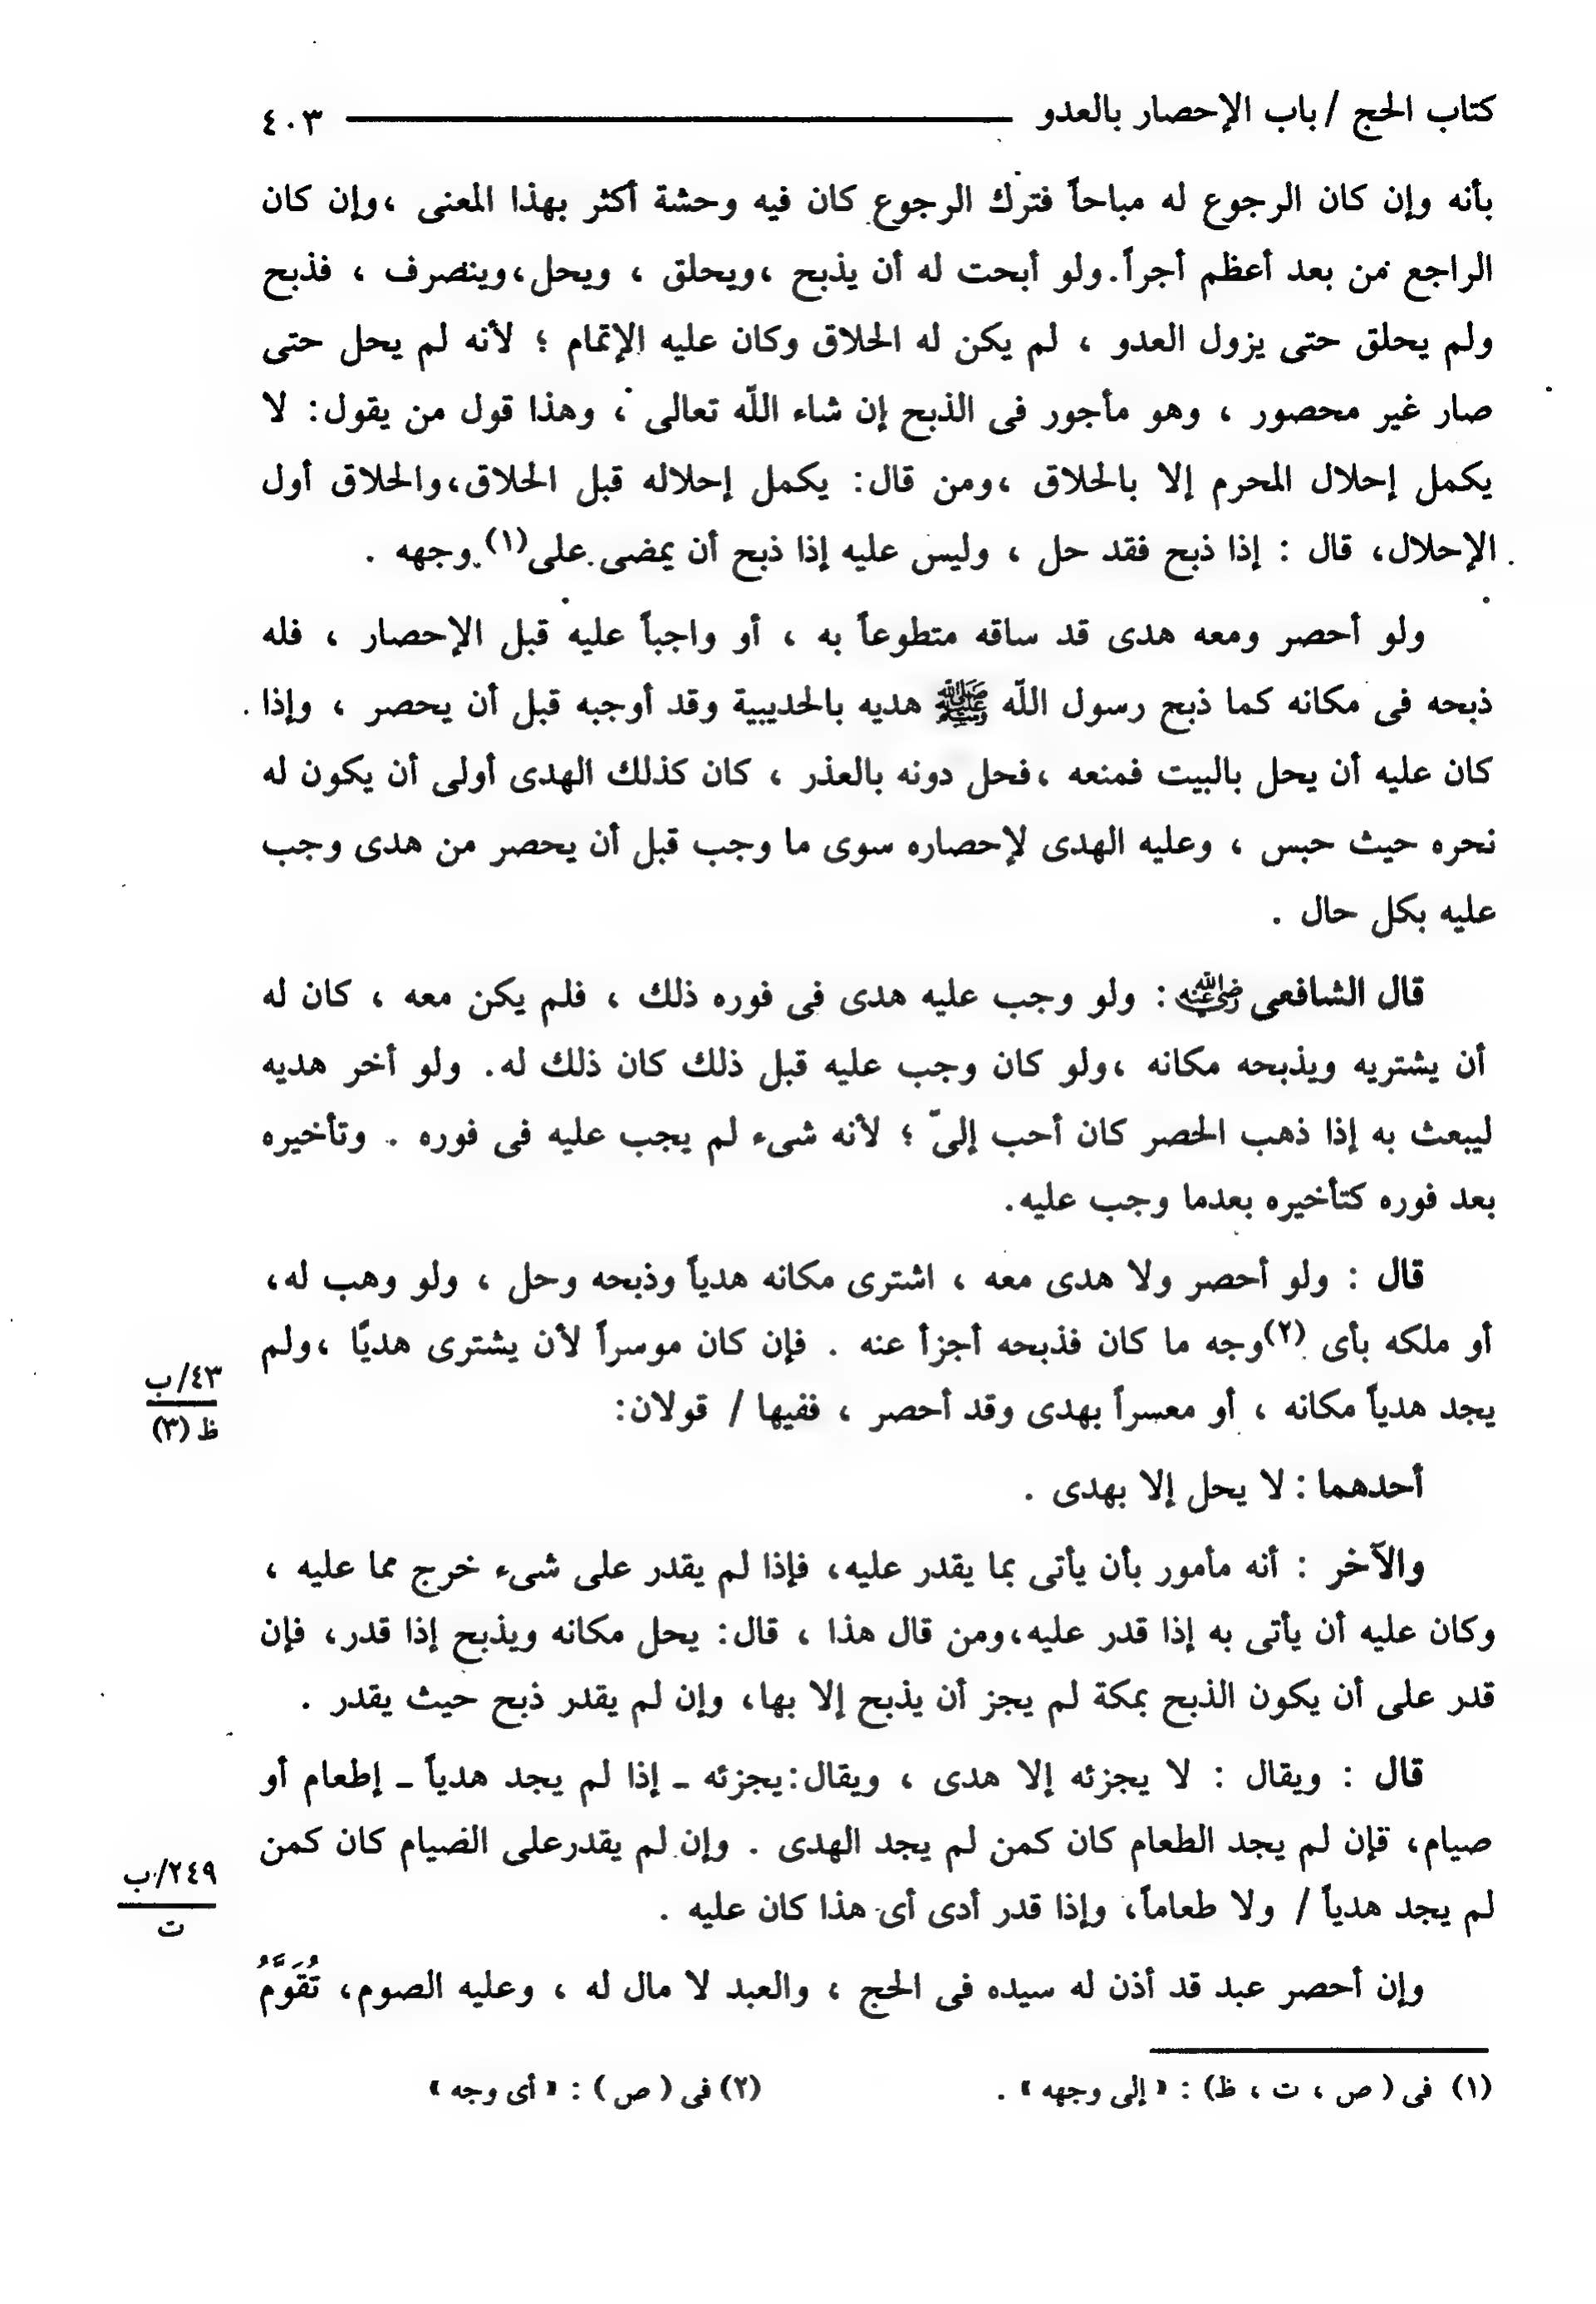 كتاب الحج / باب الإحصار بالعدو ٤٠٣
بأنه وإن كان الرجوع له مباحاً فترك الرجوع كان فيه وحشة أكثر بهذا المعنى ، وإن كان
الراجع من بعد أعظم أجراً. ولو أبحت له أن يذبح ، ويحلق ، ويحل، وينصرف ، فذبح
ولم يحلق حتى يزول العدو ، لم يكن له الحلاق وكان عليه الإتمام ؛ لأنه لم يحل حتى
صار غير محصور ، وهو مأجور فى الذبح إن شاء اللّه تعالى ، وهذا قول من يقول: لا
يكمل إحلال المحرم إلا بالحلاق ، ومن قال: يكمل إحلاله قبل الحلاق، والحلاق أول
الإحلال، قال : إذا ذبح فقد حل ، وليس عليه إذا ذبح أن يمضى على(١) وجهه .
ولو أحصر ومعه هدى قد ساقه متطوعاً به ، أو واجباً عليه قبل الإحصار ، فله
ذبحه فى مكانه كما ذبح رسول اللّه ﷺ هديه بالحديبية وقد أوجبه قبل أن يحصر ، وإذا
كان عليه أن يحل بالبيت فمنعه ، فحل دونه بالعذر ، كان كذلك الهدى أولى أن يكون له
نحره حيث حبس ، وعليه الهدى لإحصاره سوى ما وجب قبل أن يحصر من هدى وجب
عليه بكل حال .
قال الشافعى رضي الله عنه : ولو وجب عليه هدى فى فوره ذلك ، فلم يكن معه ، كان له
أن يشتريه ويذبحه مكانه ، ولو كان وجب عليه قبل ذلك كان ذلك له. ولو أخر هديه
ليبعث به إذا ذهب الحصر كان أحب إلىّ ؛ لأنه شىء لم يجب عليه فى فوره . وتأخيره
بعد فوره كتأخيره بعدما وجب عليه.
قال : ولو أحصر ولا هدى معه ، اشترى مكانه هدياً وذبحه وحل ، ولو وهب له،
أو ملكه بأى (٢) وجه ما كان فذبحه أجزأ عنه . فإن كان موسراً لأن يشترى هديًا ، ولم
يجد هدياً مكانه ، أو معسراً بهدى وقد أحصر ، ففيها / قولان:
٤٣/ب
ظ (٣)
أحدهما : لا يحل إلا بهدى .
والآخر : أنه مأمور بأن يأتى بما يقدر عليه، فإذا لم يقدر على شىء خرج مما عليه ،
وكان عليه أن يأتى به إذا قدر عليه، ومن قال هذا ، قال: يحل مكانه ويذبح إذا قدر، فإن
قدر على أن يكون الذبح بمكة لم يجز أن يذبح إلا بها، وإن لم يقدر ذبح حيث يقدر .
قال : ويقال : لا يجزئه إلا هدى ، ويقال: يجزئه ـ إذا لم يجد هدياً ـ إطعام أو
صيام، فإن لم يجد الطعام كان كمن لم يجد الهدى . وإن لم يقدر على الصيام كان كمن
لم يجد هدياً / ولا طعاماً، وإذا قدر أدى أى هذا كان عليه .
٢٤٩/ب
ت
وإن أحصر عبد قد أذن له سيده فى الحج ، والعبد لا مال له ، وعليه الصوم، تُقَوَّمُ
(١) فى ( ص ، ت ، ظ) : « إلى وجهه » .
(٢) فى ( ص ) : « أى وجه »